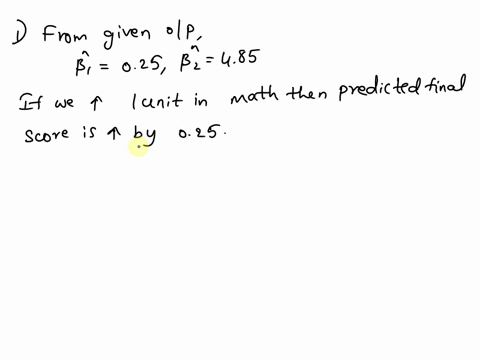 1) From given o/p,
β̂₁ = 0.25, β̂₂ = 4.85
If we ↑ 1 unit in math then predicted final
score is ↑ by 0.25.